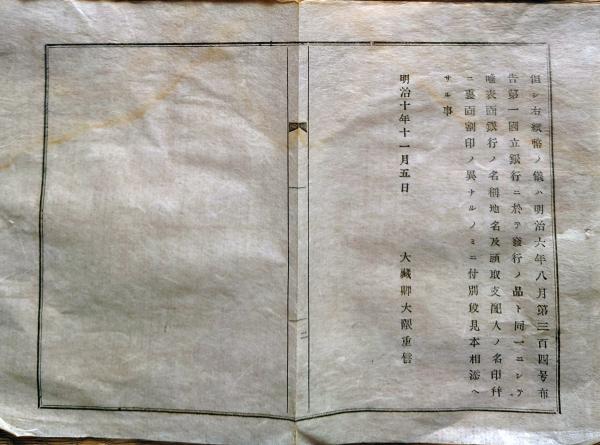 但シ右紙幣ノ儀ハ明治六年八月第三百四号布
告第一國立銀行ニ於テ發行ノ品ト同一ニシテ
唯表面銀行ノ名稱地名及頭取支配人ノ名印幷
ニ裏面割印ノ異ナルノミニ付別段見本相添ヘ
サル事
明治十年十一月五日
大藏卿大隈重信